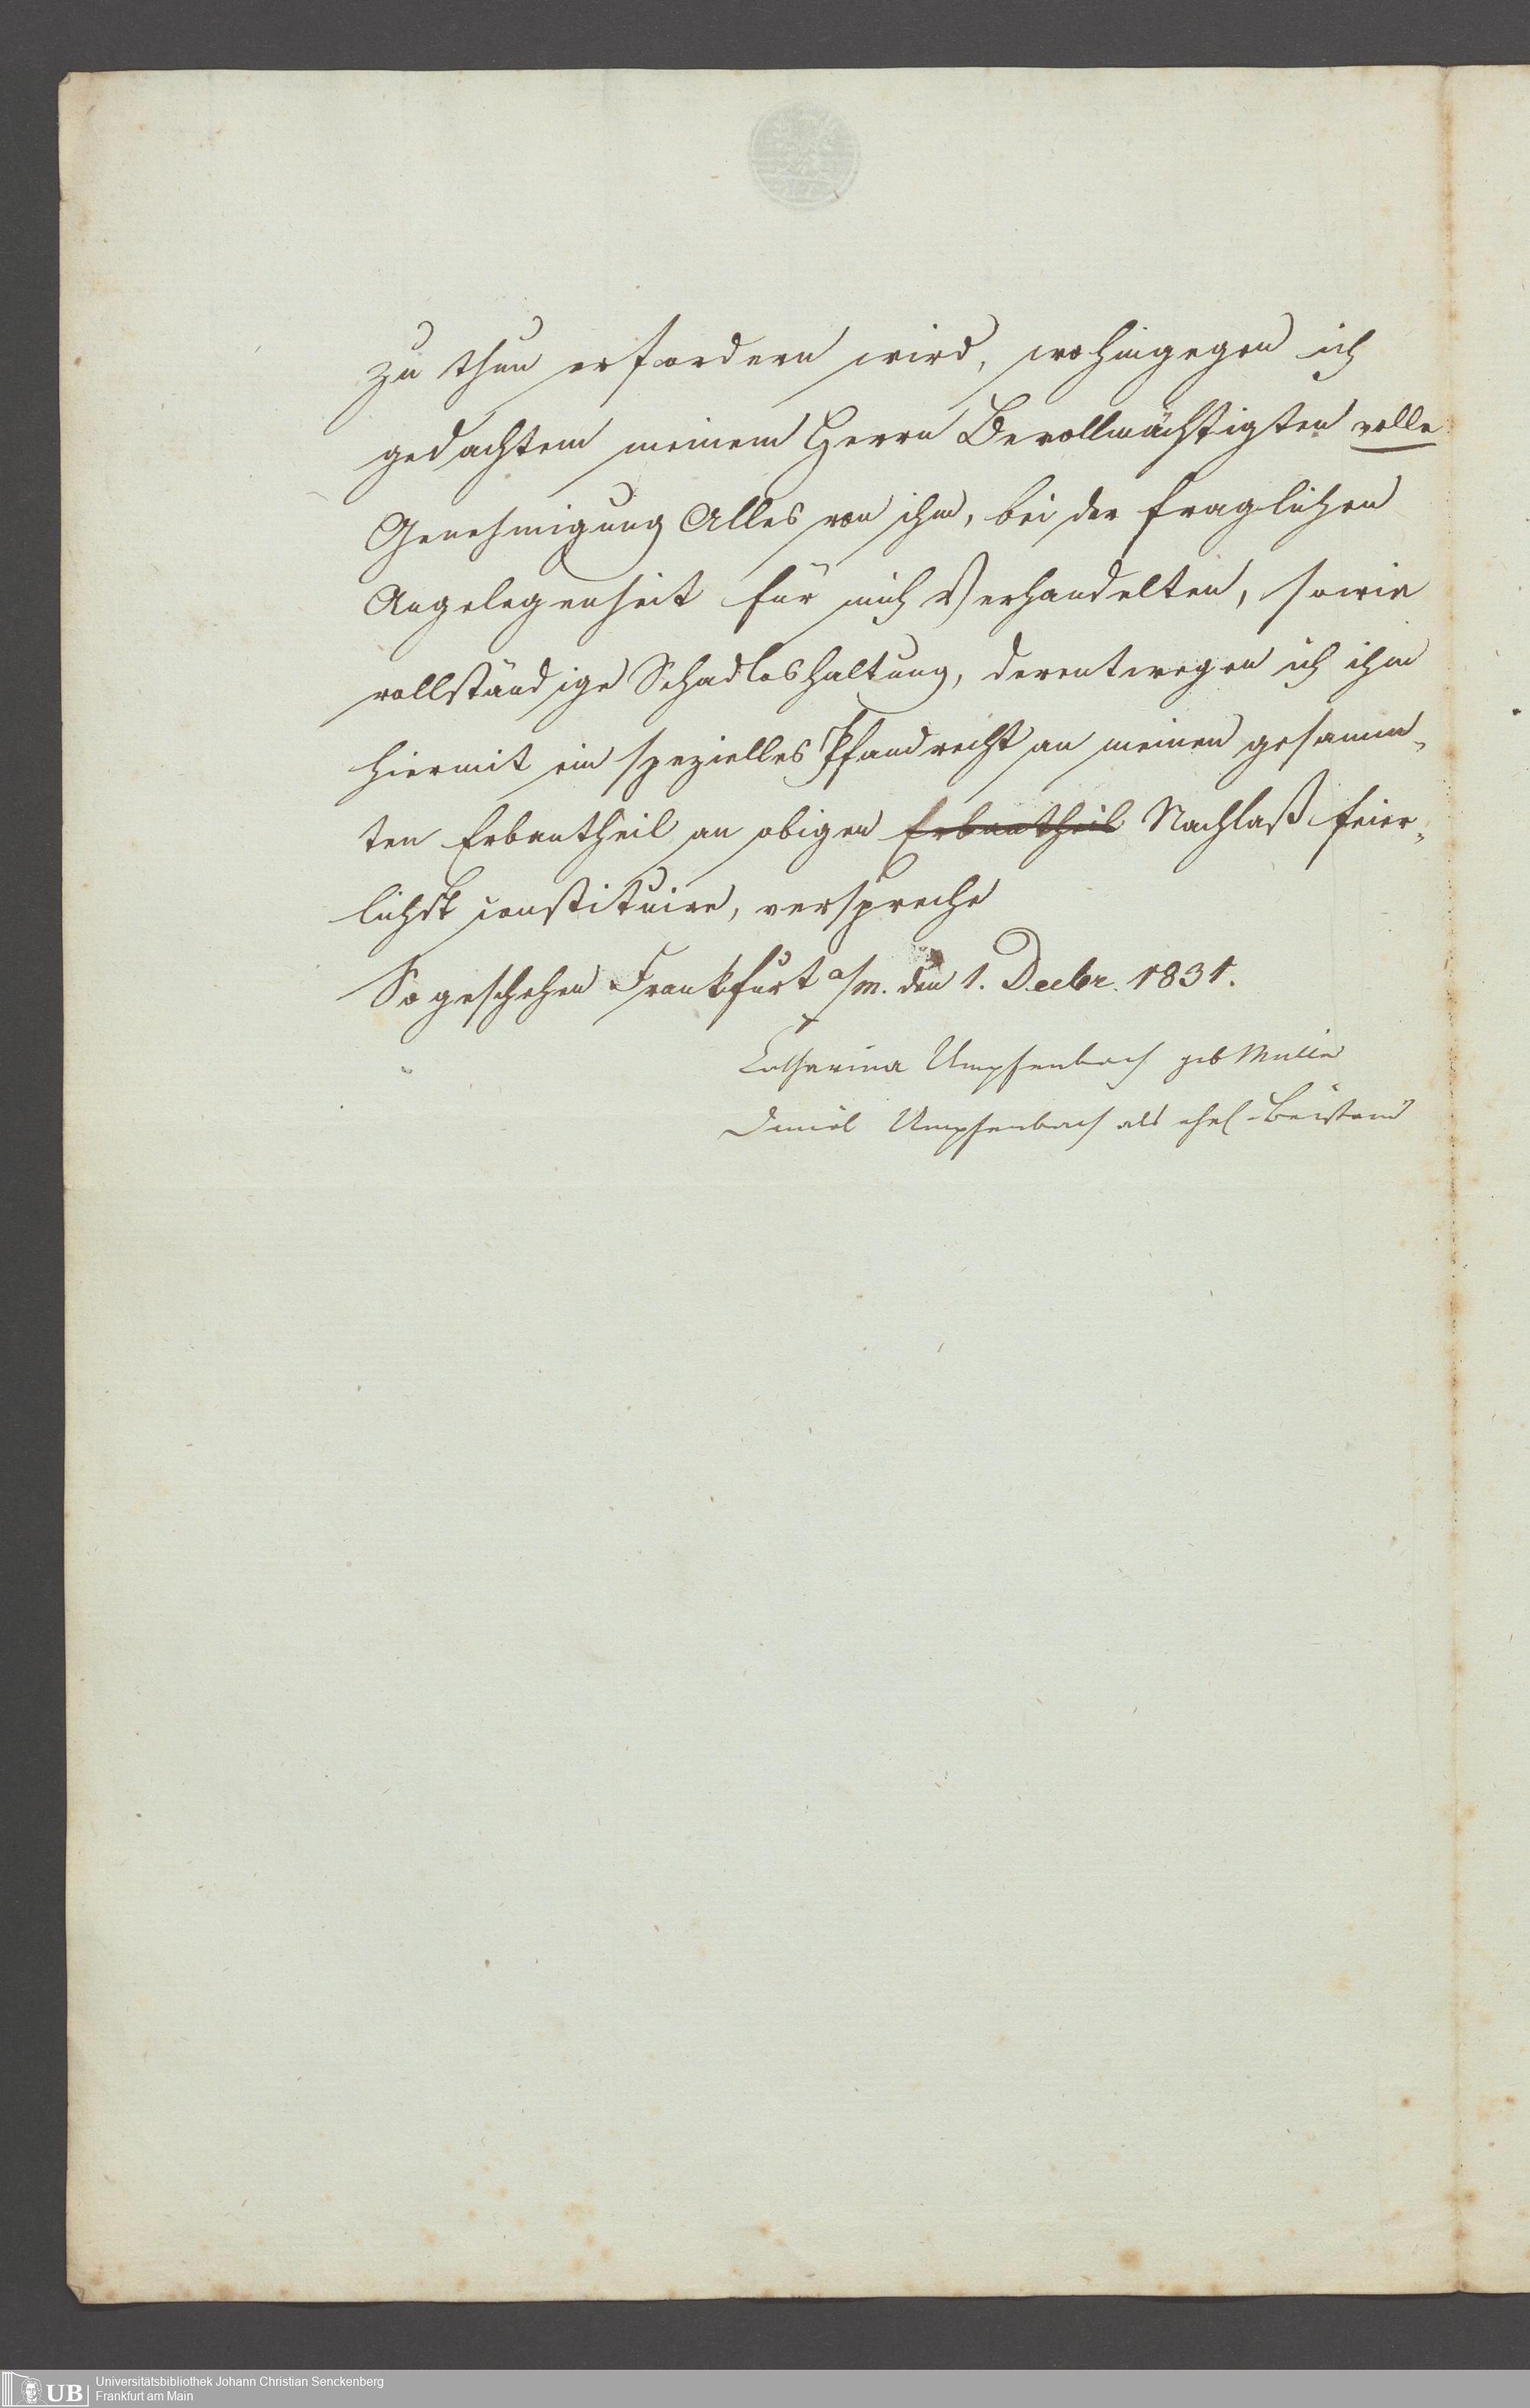 zu thun erfordern wird, wohingegen ich
gedachtem meinem Herrn Bevollmächtigten volle
Genehmigung Alles von ihm, bei der fraglichen
Angelegenheit für mich Verhandelten, sowie
vollständige Schadloshaltung, derentwegen ich ihm
hiermit ein spezielles Pfandrecht an meinen gesamm„
ten Erbantheil an obigen Erbantheil Nachlaß feier„
lichst constituire, verspreche
So geschehen Frankfurt a/m. den 1. Decbr. 1831.
Catharina Umpfenbach geb
Daniel Umpfenbach als ehel. Beistand
UB Universitätsbibliothek Johann Christian Senckenberg
Frankfurt am Main